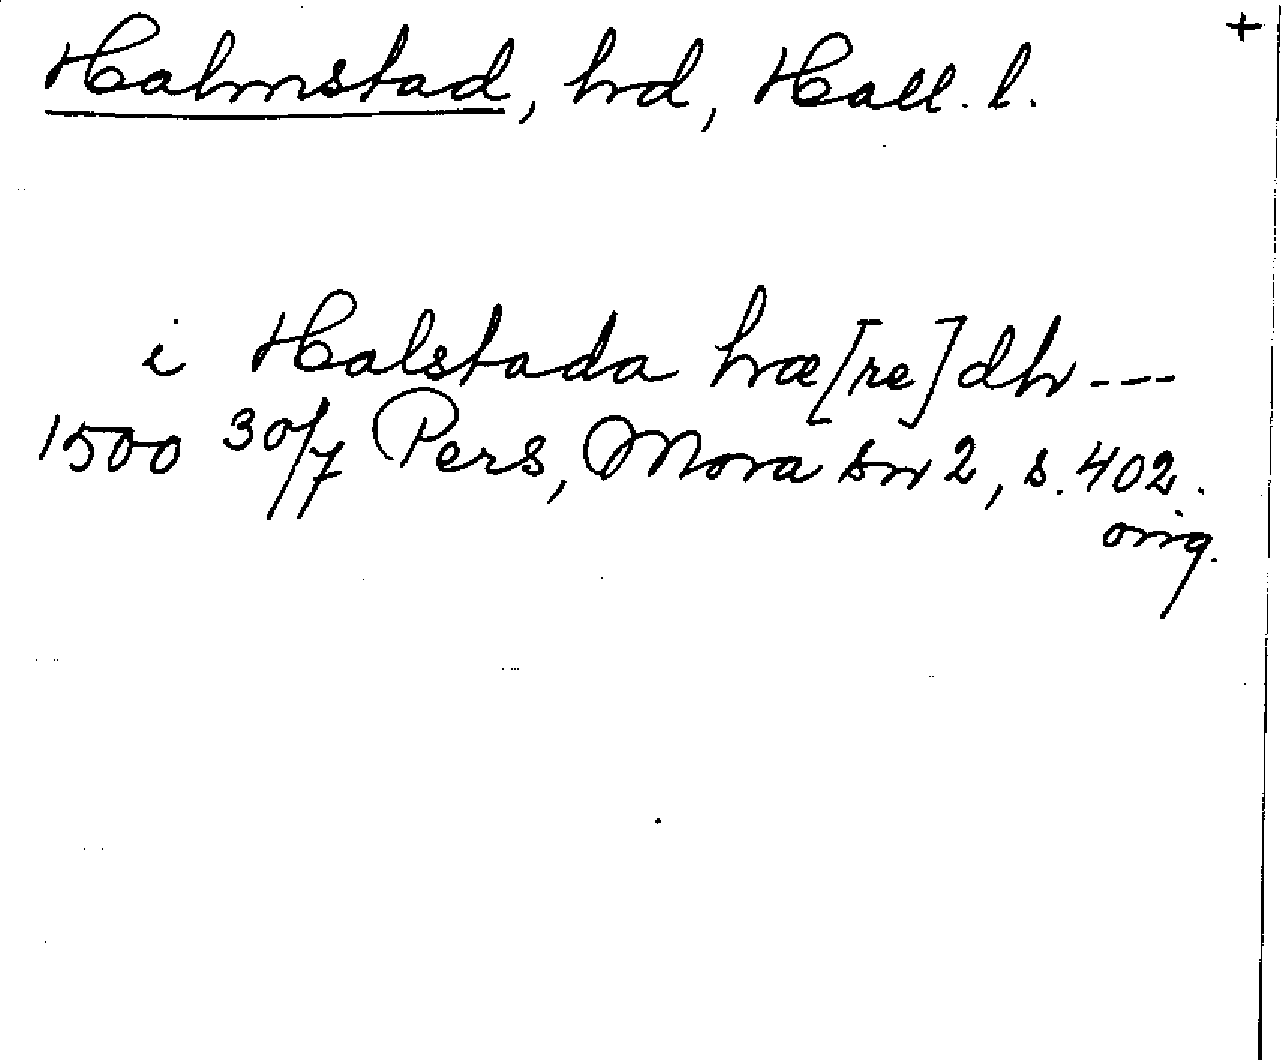 +
Halmstad, hd, Hall. l.
i Halstada hæ[re]dh ---
1500 30/7 Pers, Mora sn 2, s. 402.
orig.